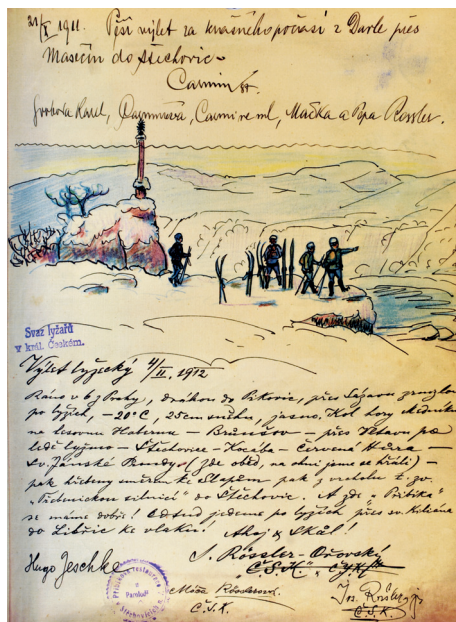 21/X 1911. Pěší výlet za krásného počasí z Davle přes
Masečín do Štěchovic
Carmin
Svoboda Karel, Carminová, Carmine ml, Mačka a Papa Rössler.
Svaz lyžařů
v král. Českém.
Výlet lyžecký 4/II. 1912
Ráno v 6 z Prahy, drahou do Pikovic, přes Sázavu zmrzlou
po lyžích, -20°C, 25 cm sněhu, jasno. Kol hory Medníku
na lesovnu Habernu - Brunšov - přes Vltavu po
ledě lyžmo - Štěchovice - Kocába - Červená Hůrka -
Sv. Jánské Proudy (zde oběd, na ohni jsme se hřáli) -
pak hřebeny směrem ke Slapům pak s vrcholu t. zv.
"Technickou silnicí" do Štěchovic. A zde u "Přibika"
se máme dobře! Odtud jedeme po lyžích přes sv. Kiliána
do Libřic ke vlaku! Ahoj & Skál!
Hugo Jeschke
J. Rössler-Ořovský
Č.S.K.
Máša Rösslerová
Č.S.K.
Jos. Rössler jr.
Č.S.K.